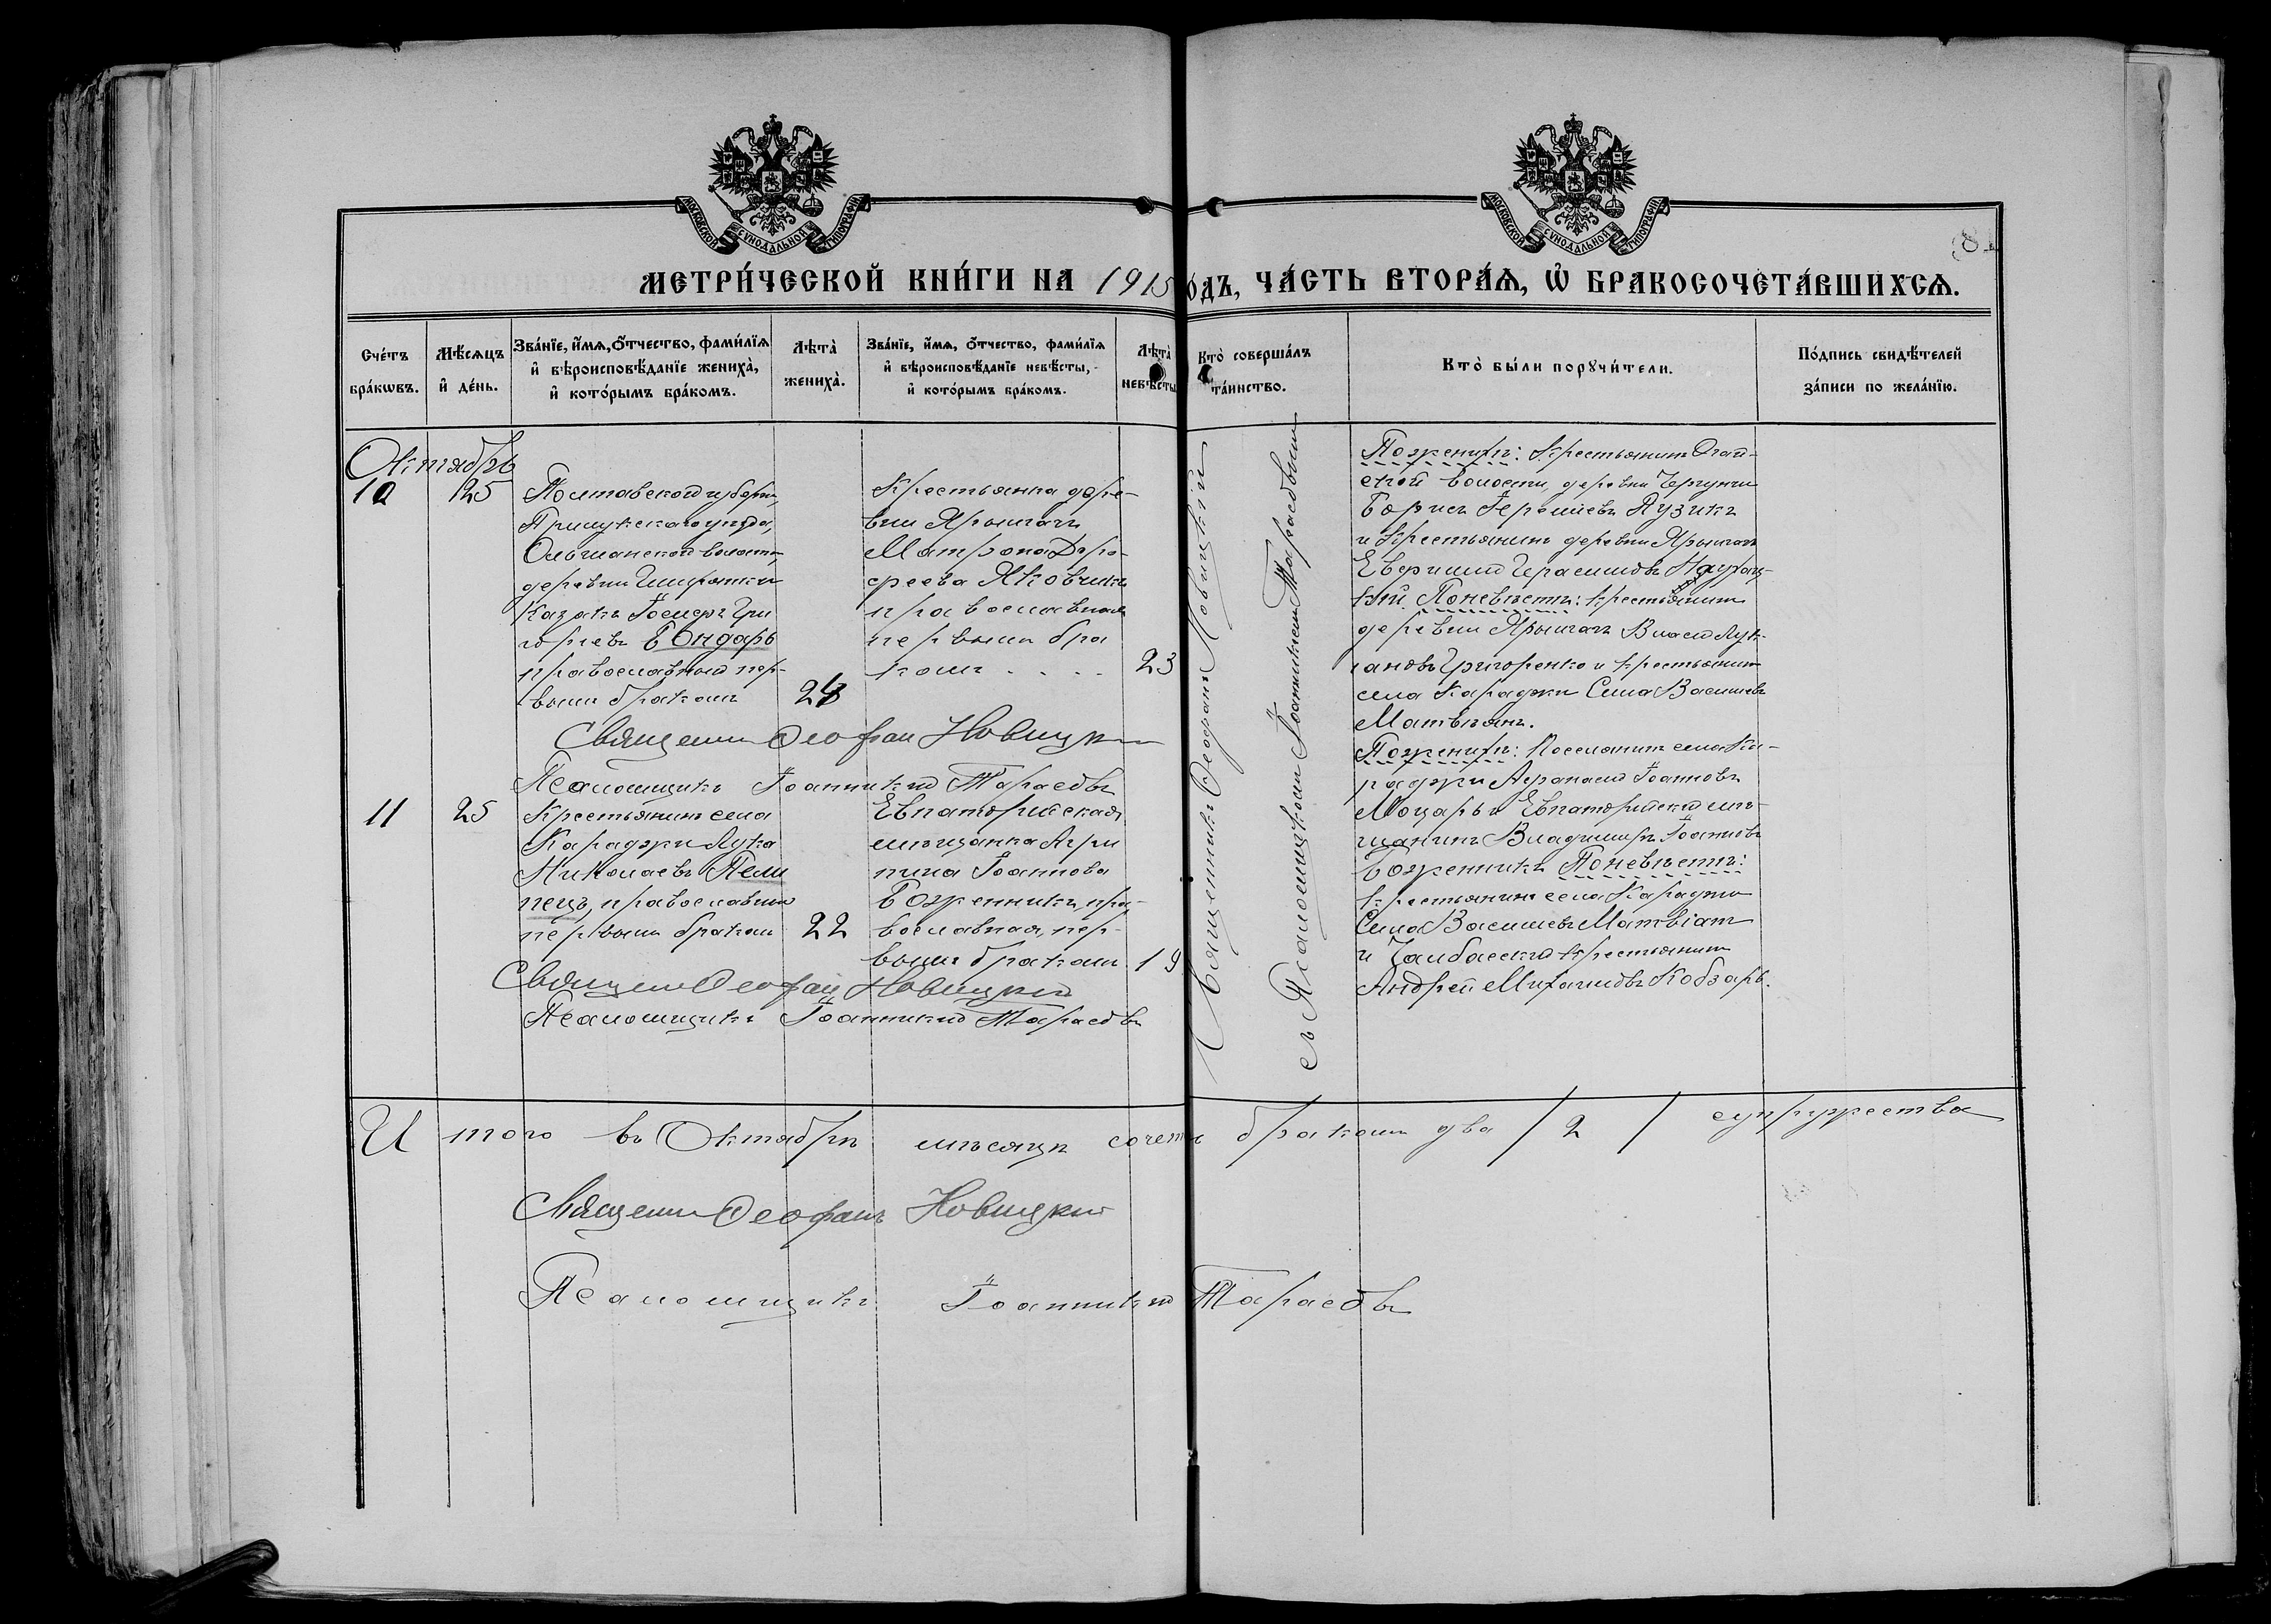 МОСКОВСКОЙ СУНОДАЛЬНОЙ ТИПОГРАФІИ
МОСКОВСКОЙ СУНОДАЛЬНОЙ ТИПОГРАФІИ
МЕТРИ́ЧЕСКОЙ КНИ́ГИ НА 1915 ОДЪ, ЧА́СТЬ ВТОРА́Я, Ѡ БРАКОСОЧЕТА́ВШИХСЯ.
Сче́тъ бра́кѡвъ.
Мѣ́сяцъ и де́нь.
Зва́нїе, и́мя, о́тчество, фами́лїя
и вѣроисповѣ́данїе жениха̀,
и кото́рымъ бра́комъ.
Лѣта̀ жениха̀.
Зва́нїе, и́мя, о́тчество, фами́лїя
и вѣроисповѣ́данїе невѣ́сты,
и кото́рымъ бра́комъ.
Лѣта̀ невѣ́сты
Кто̀ соверша́лъ та́инство.
Кто̀ бы́ли порꙋчи́тели.
По́дпись свидѣ́телей
за́писи по жела́нїю.
Октябрь
10
25
Полтавской губерн.,
Прилукскаго уѣзда,
Ольшанской волости,
деревни
Казакъ Іосифъ Гри
горьевъ Бондарь
православный пер-
вымъ бракомъ
24
Крестьянка дере-
вни Ярылгачъ
Матрона Доро-
феева Яковчикъ
православная
первымъ бра
комъ . . . .
23
Священникъ Ѳеофанъ Новицкій
съ Псаломщикомъ Іоанникіемъ Тарасовымъ
По женихѣ: Крестьянинъ
ской волости, деревни
Борисъ Пузикъ
и Крестьянинъ деревни Ярылгачъ
Герасимовъ
кій. По невѣстѣ: крестьянинъ
деревни Ярылгачъ Власій Лук-
іановъ Григоренко и крестьянинъ
села Караджи Сила Васильевъ
Матвіянъ.
Священник Ѳеофан Новицкій
Псаломщикъ Іоанникій Тарасовъ
11
25
Крестьянинъ села
Караджи Лука
Николаевъ Пели
пецъ, православный
первымъ бракомъ
22
Евпаторійская
мѣщанка Агри
пина Іоаннова
Боженникъ, пра-
вославная, пер-
вымъ бракомъ
19
По женихѣ: Поселянинъ села Ка-
раджи Аѳанасій Іоанновъ
Моцарь и Евпаторійскій мѣ-
щанинъ Владимиръ Іоанновъ
Боженникъ По невѣстѣ:
крестьянинъ села Караджи
Сила Васильевъ Матвіянъ
и крестьянинъ
Андрей Михаиловъ Кобзарь.
Священник Ѳеофан Новицкій
Псаломщикъ Іоанникій Тарасовъ
Итого въ Октябрѣ мѣсяцѣ сочет. бракомъ два / 2 / супружества
Священник Ѳеофанъ Новицкій
Псаломщикъ Іоанникій Тарасовъ